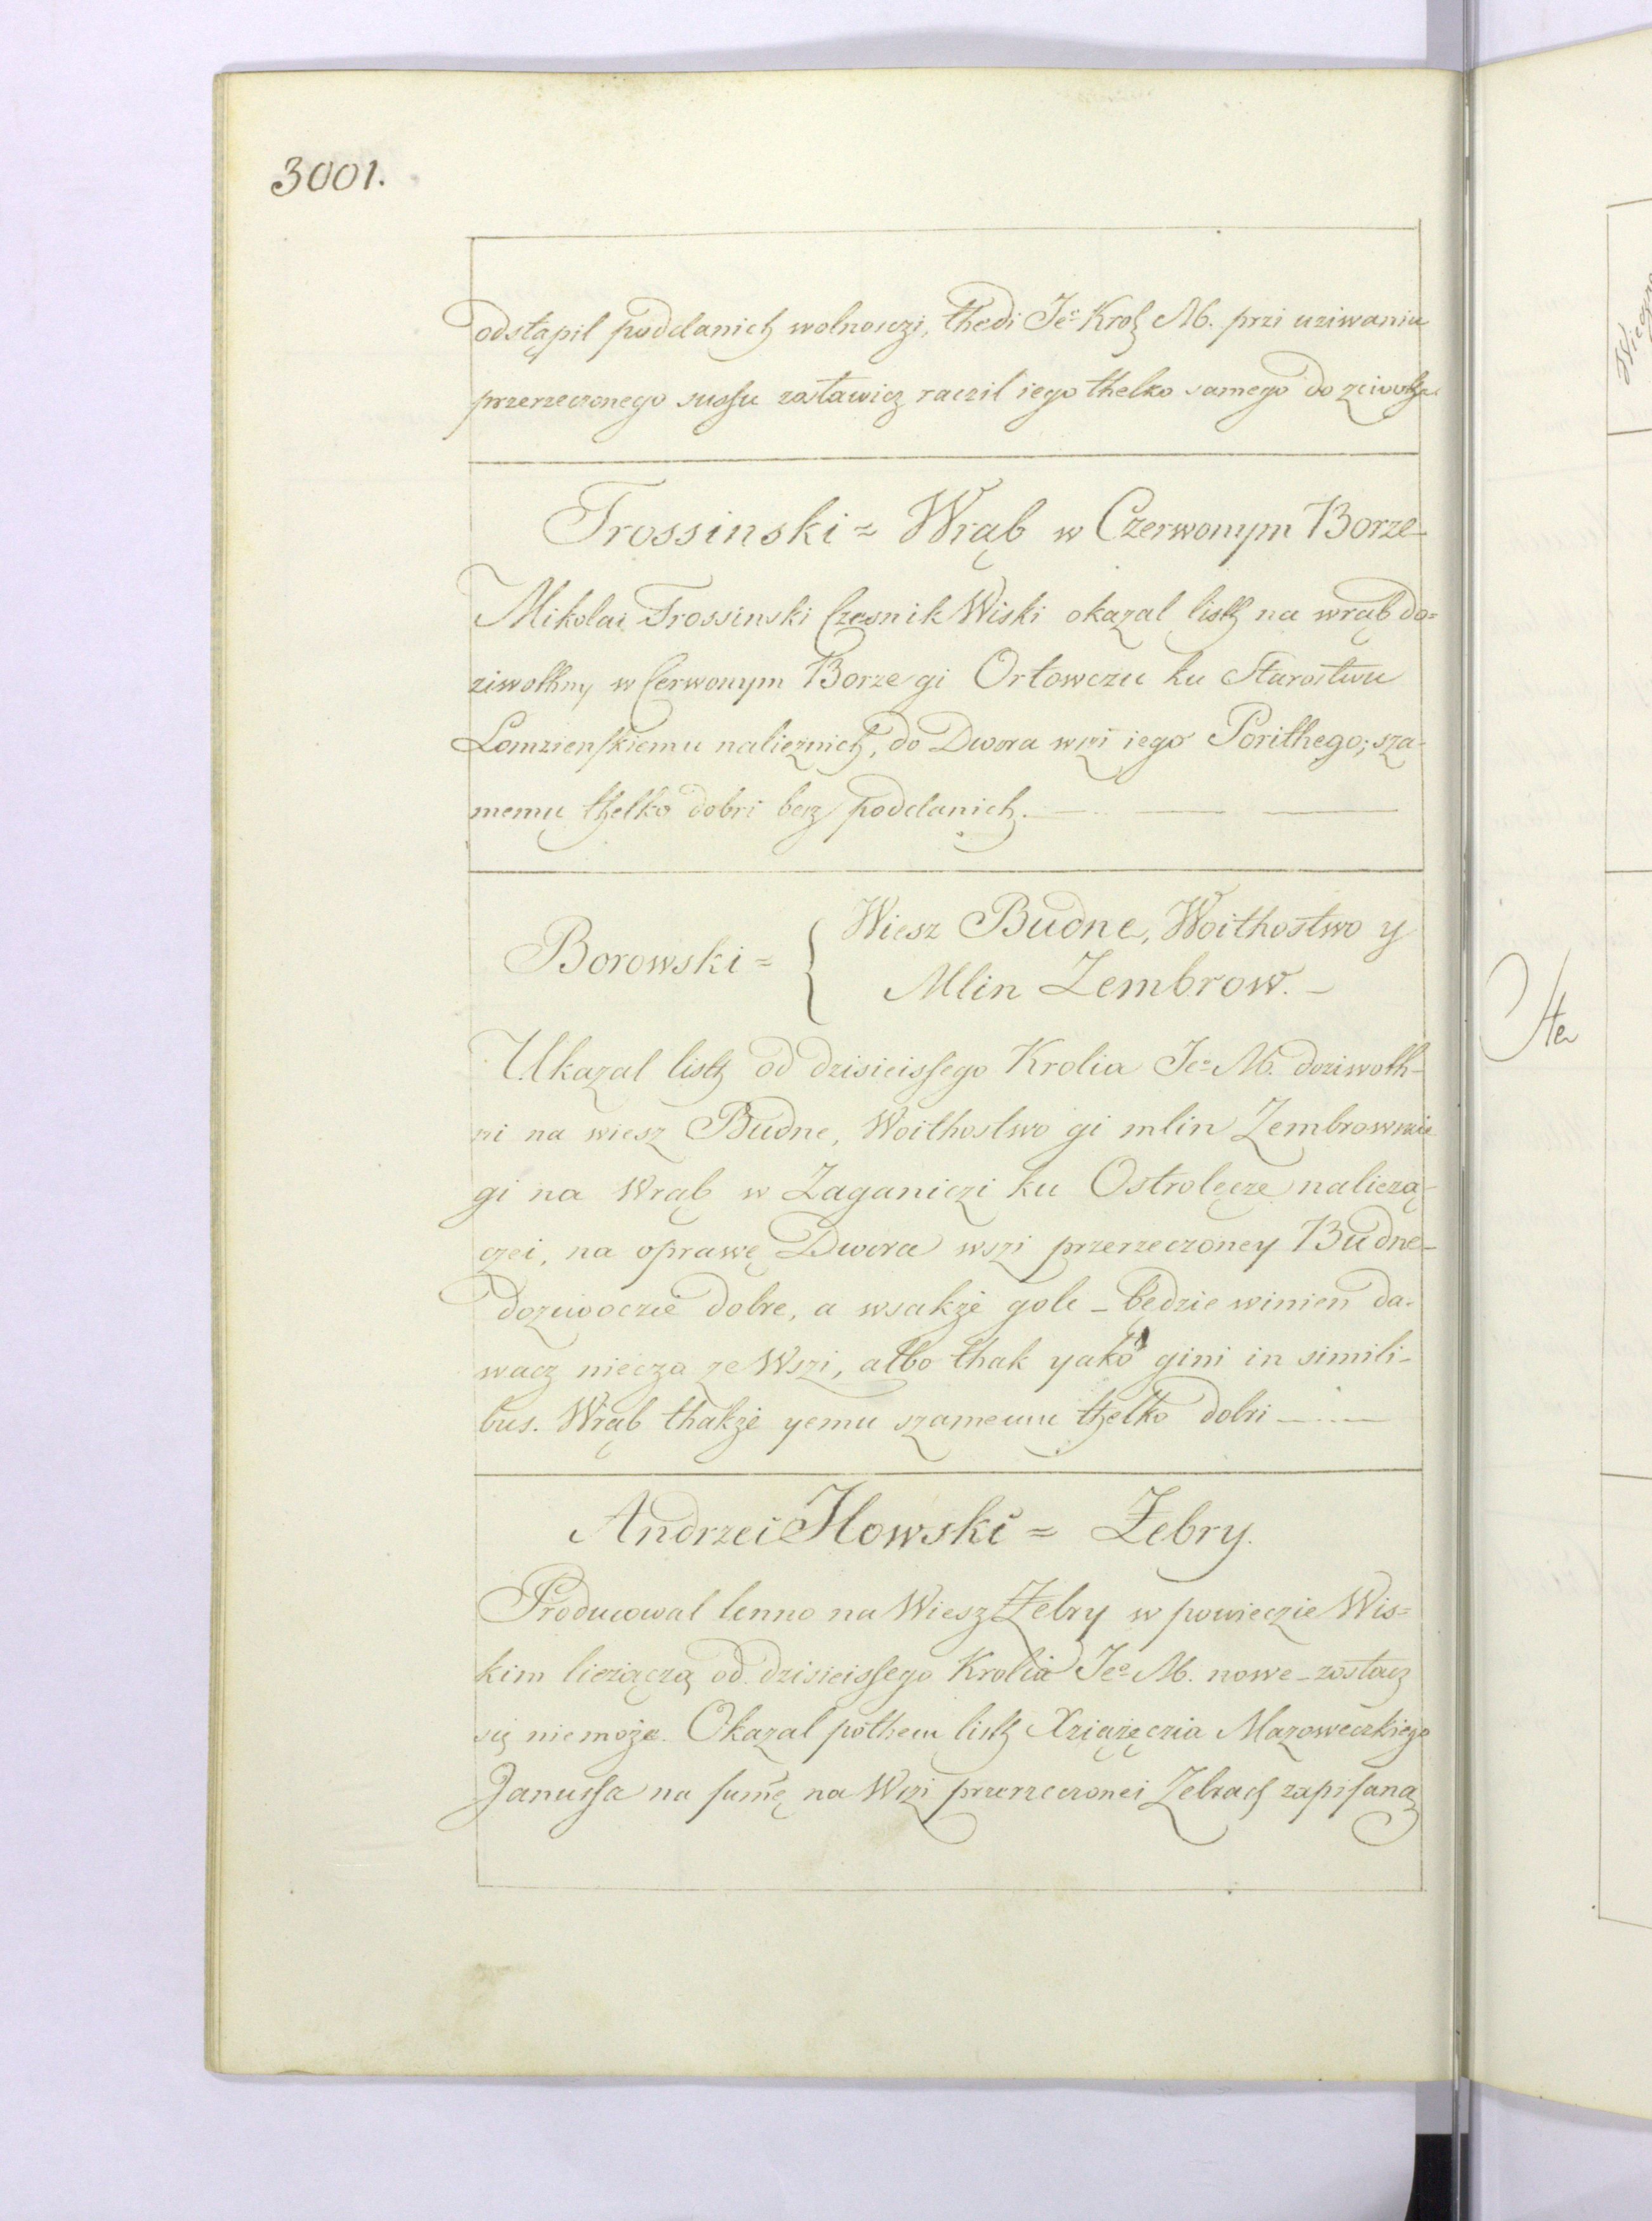 3001.
odstąpil poddanich wolnosczi, thedi Jeº Krol M. przi uziwaniu
przerzeczonego suossu zostawicz raczil iego thelko samego do
Trossinski = Wrąb w Czerwonym Borze
Mikolai Trossinski Czesnik Wiski okazal listh na wrąb do=
ziwothny w Czerwonym Borze gi Orłowczu ku Starostwu
Lomzienskiemu nalieznich, do Dwora wszi iego Porithego; sza-
memu thelko dobri bez poddanich.
Borowski = { Wiesz Budne, Woithostwo y
Mlin Zembrow. –
Ukazal listh od dzisieissego Krolia Jeº M. doziwoth-
ni na wiesz Budne, Woithostwo gi mlin Zembrowski
gi na wrąb w Zaganiczi ku Ostrolęcze nalieżą-
czei, na oprawę Dwora wszi przerzeczoney Budne–
doziwoczie dobre, a wsakże gole – będzie winien da-
wacz niecza ze Wszi, albo thak yako gini in simili-
bus. Wrąb thakże yemu szamemu thelko dobri
Andrzei Ilowski = Żebry.
Producowal lenno na Wiesz Żebry w powieczie Wis=
kim lieżączą od dzisieissego Krolia Jeº M. nowe – zostacz
się niemoże. Okazal pothem listh Xziążęczia Mazoweczkiego
Janussa na sumę na Wszi przerzeczonei Zebrach zapisaną